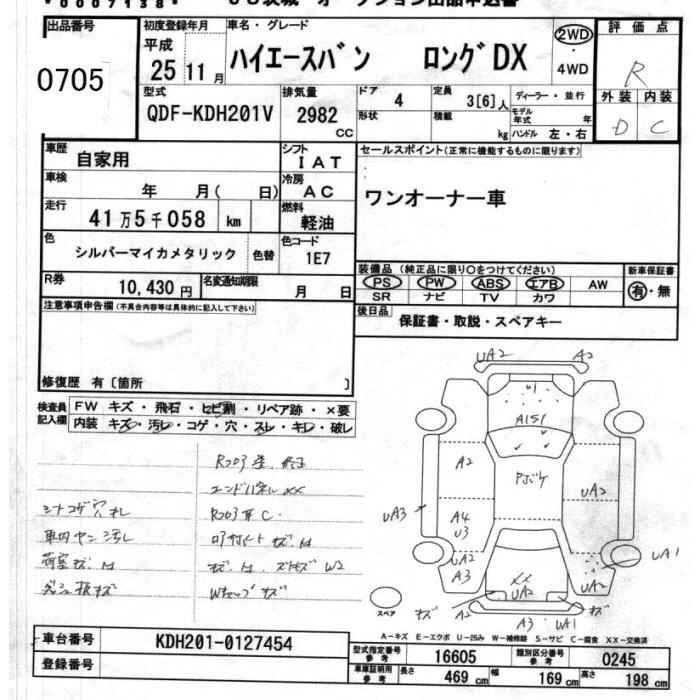 出品番号
0705
初度登録年月
平成
25 11 月
車名・グレード
ハイエースバン ロングDX
2WD
・
4WD
評価点
R
外装 内装
D C
型式
QDF-KDH201V
排気量
2982
CC
ドア
4
形状
定員
3[6]人
積載
kg
ディーラー・並行
モデル年式 年
ハンドル 左・右
車歴
自家用
シフト
IAT
車検
年 月( 日)
冷房
AC
走行
41万5千058 km
燃料
軽油
色
シルバーマイカメタリック 色替
色コード
1E7
R券
10,430 円
名変通知期限
月 日
セールスポイント(正常に機能するものに限ります)
ワンオーナー車
装備品 (純正品に限り○をつけてください)
PS PW ABS エアB AW
SR ナビ TV カワ
新車保証書
有・無
後日品
保証書・取説・スペアキー
注意事項申告欄(不具合内容等は具体的に記入して下さい)
修復歴 有〔箇所 〕
検査員
記入欄
FW キズ ・ 飛石 ・ ヒビ割 ・ リペア跡 ・ ×要
内装 キズ・汚レ・コゲ・穴・スレ・キレ・破レ
エンドパネル××
シートコゲ穴
荷室キズ
Wキャップキズ
UA2 A2
A1S1
A2
Pボケ
UA2
UA3
A4
U3
UA2
A3
UA1
UA2
××
UA2
キズ A2
A3 UA1
キズ
スペア
A-キズ E-エクボ U-凹み W-補修跡 S-サビ C-腐食 XX-交換済
車台番号
KDH201-0127454
登録番号
型式指定番号
参考
16605
類別区分番号
参考
0245
車庫証明用
参考
長さ 469 cm 幅 169 cm 高さ 198 cm